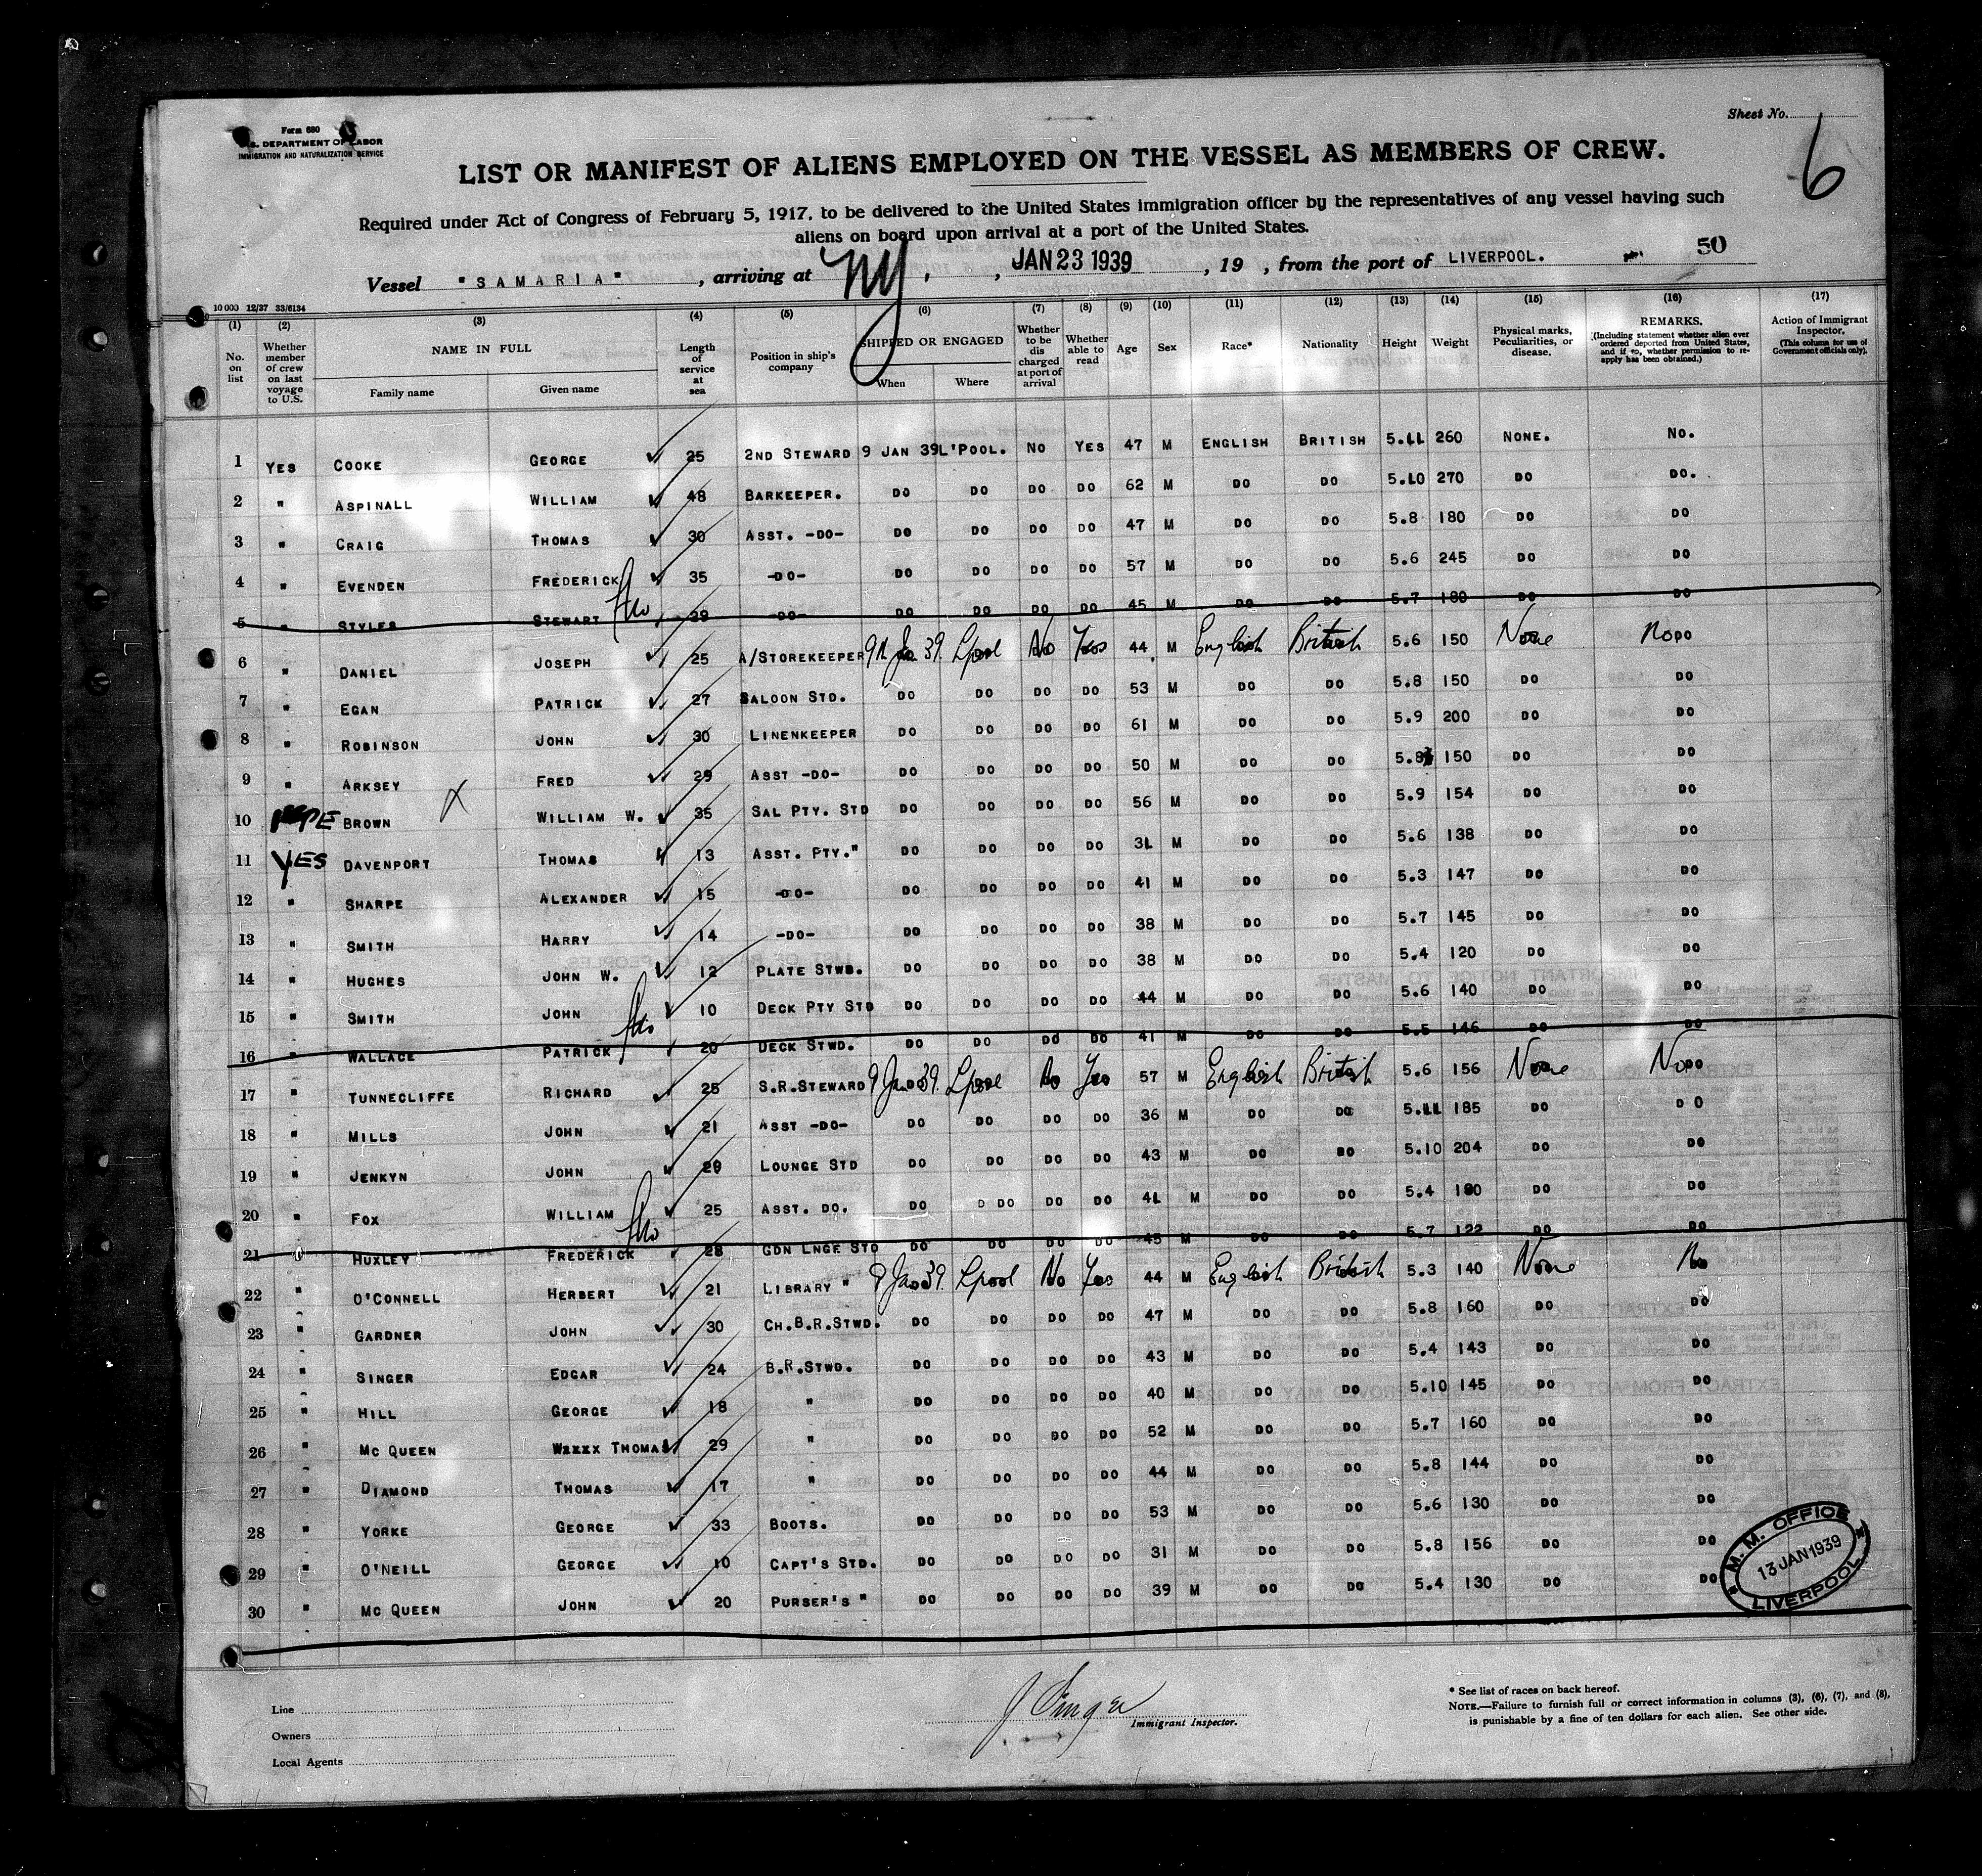 Sheet No.
6
Form 680
U.S. DEPARTMENT OF LABOR
IMMIGRATION AND NATURALIZATION SERVICE
LIST OR MANIFEST OF ALIENS EMPLOYED ON THE VESSEL AS MEMBERS OF CREW.
Required under Act of Congress of February 5, 1917, to be delivered to the United States immigration officer by the representatives of any vessel having such
aliens on board upon arrival at a port of the United States.
Vessel "SAMARIA", arriving at NY., JAN 23 1939, 19 , from the port of LIVERPOOL. 50
10 000 12/37 33/6134
(1) (2) (3) (4) (5) (6) (7) (8) (9) (10) (11) (12) (13) (14) (15) (16) (17)
No. on list
Whether member of crew on last voyage to U.S.
NAME IN FULL
Family name Given name
Length of service at sea
Position in ship's company
SHIPPED OR ENGAGED
When Where
Whether to be dis charged at port of arrival
Whether able to read
Age Sex Race* Nationality Height Weight
Physical marks, Peculiarities, or disease.
REMARKS. (Including statement whether alien ever ordered deported from United States, and if so, whether permission to re-apply has been obtained.)
Action of Immigrant Inspector. (This column for use of Government officials only).
1 YES COOKE GEORGE 25 2ND STEWARD 9 JAN 39 L'POOL. NO YES 47 M ENGLISH BRITISH 5.11 260 NONE. NO.
2 " ASPINALL WILLIAM 48 BARKEEPER. DO DO DO DO 62 M DO DO 5.10 270 DO DO.
3 " CRAIG THOMAS 30 ASST. -DO- DO DO DO DO 47 M DO DO 5.8 180 DO DO
4 " EVENDEN FREDERICK 35 -DO- DO DO DO DO 57 M DO DO 5.6 245 DO DO
5 " STYLES STEWART 29 -DO- DO DO DO DO 45 M DO DO 5.7 180 DO DO
6 " DANIEL JOSEPH 25 A/STOREKEEPER 9th Jan 39. Lpool No Yes 44 M English British 5.6 150 None No
7 " EGAN PATRICK 27 SALOON STD. DO DO DO DO 53 M DO DO 5.8 150 DO DO
8 " ROBINSON JOHN 30 LINENKEEPER DO DO DO DO 61 M DO DO 5.9 200 DO DO
9 " ARKSEY FRED 29 ASST -DO- DO DO DO DO 50 M DO DO 5.8 150 DO DO
10 BROWN X WILLIAM W. 35 SAL PTY. STD DO DO DO DO 56 M DO DO 5.9 154 DO DO
11 YES DAVENPORT THOMAS 13 ASST. PTY." DO DO DO DO 31 M DO DO 5.6 138 DO DO
12 " SHARPE ALEXANDER 15 -DO- DO DO DO DO 41 M DO DO 5.3 147 DO DO
13 " SMITH HARRY 14 -DO- DO DO DO DO 38 M DO DO 5.7 145 DO DO
14 " HUGHES JOHN W. 12 PLATE STWD. DO DO DO DO 38 M DO DO 5.4 120 DO DO
15 " SMITH JOHN 10 DECK PTY STD DO DO DO DO 44 M DO DO 5.6 140 DO DO
16 " WALLACE PATRICK 20 DECK STWD. DO DO DO DO 41 M DO DO 5.5 146 DO DO
17 " TUNNECLIFFE RICHARD 25 S.R.STEWARD 9 Jan 39. Lpool No Yes 57 M English British 5.6 156 None No
18 " MILLS JOHN 21 ASST -DO- DO DO DO DO 36 M DO DO 5.11 185 DO DO
19 " JENKYN JOHN 29 LOUNGE STD DO DO DO DO 43 M DO DO 5.10 204 DO DO
20 " FOX WILLIAM 25 ASST. DO. DO D DO DO DO 41 M DO DO 5.4 180 DO DO
21 HUXLEY FREDERICK 28 GDN LNGE STD DO DO DO DO 45 M DO DO 5.7 122 DO DO
22 " O'CONNELL HERBERT 21 LIBRARY " 9 Jan 39. Lpool No Yes 44 M English British 5.3 140 None No
23 " GARDNER JOHN 30 CH.B.R.STWD. DO DO DO DO 47 M DO DO 5.8 160 DO DO
24 " SINGER EDGAR 24 B.R.STWD. DO DO DO DO 43 M DO DO 5.4 143 DO DO
25 " HILL GEORGE 18 " DO DO DO DO 40 M DO DO 5.10 145 DO DO
26 " MC QUEEN Wxxxx THOMAS 29 " DO DO DO DO 52 M DO DO 5.7 160 DO DO
27 " DIAMOND THOMAS 17 " DO DO DO DO 44 M DO DO 5.8 144 DO DO
28 " YORKE GEORGE 33 BOOTS. DO DO DO DO 53 M DO DO 5.6 130 DO DO
29 " O'NEILL GEORGE 10 CAPT'S STD. DO DO DO DO 31 M DO DO 5.8 156 DO DO
30 " MC QUEEN JOHN 20 PURSER'S " DO DO DO DO 39 M DO DO 5.4 130 DO DO
M.M. OFFICE
13 JAN 1939
LIVERPOOL
Line
Owners
Local Agents
Immigrant Inspector.
* See list of races on back hereof.
NOTE.—Failure to furnish full or correct information in columns (3), (6), (7), and (8),
is punishable by a fine of ten dollars for each alien. See other side.